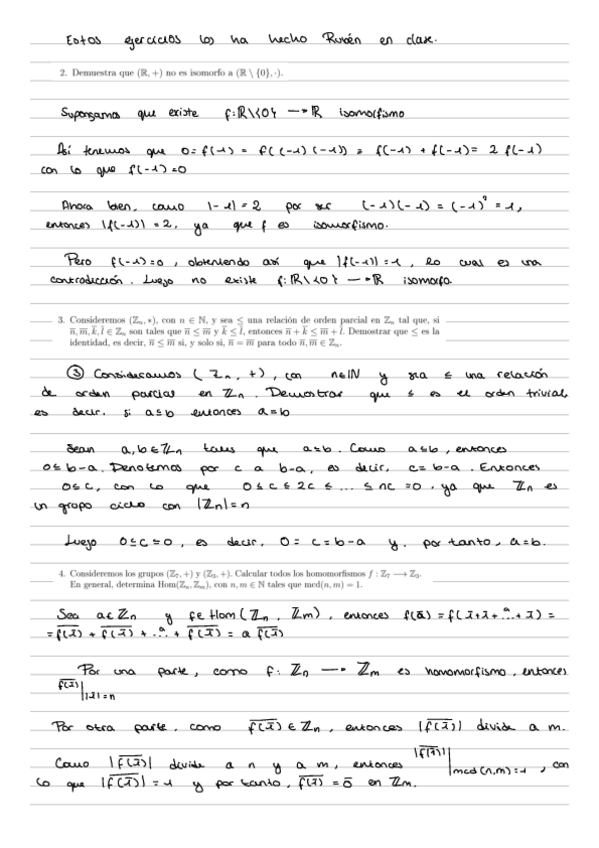 Estos ejercicios los ha hecho Rubén en clase.
2. Demuestra que (ℝ, +) no es isomorfo a (ℝ \ {0}, ·).
Supongamos que existe f: ℝ\{0} → ℝ isomorfismo
Así tenemos que 0 = f(1) = f((-1)(-1)) = f(-1) + f(-1) = 2 f(-1)
con lo que f(-1) = 0
Ahora bien, como |-1| = 2 por ser (-1)(-1) = (-1)² = 1,
entonces |f(-1)| = 2, ya que f es isomorfismo.
Pero f(-1) = 0, obteniendo así que |f(-1)| = 1, lo cual es una
contradicción. Luego no existe f: ℝ\{0} → ℝ isomorfo.
3. Consideremos (ℤₙ, *), con n ∈ ℕ, y sea ≤ una relación de orden parcial en ℤₙ tal que, si
n̅, m̅, k̅, l̅ ∈ ℤₙ son tales que n̅ ≤ m̅ y k̅ ≤ l̅, entonces n̅ + k̅ ≤ m̅ + l̅. Demostrar que ≤ es la
identidad, es decir, n̅ ≤ m̅ si, y solo si, n̅ = m̅ para todo n̅, m̅ ∈ ℤₙ.
③ Consideramos (ℤₙ, +), con n∈ℕ y sea ≤ una relación
de orden parcial en ℤₙ. Demostrar que ≤ es el orden trivial,
es decir, si a≤b entonces a=b
Sean a,b∈ℤₙ tales que a≤b. Como a≤b, entonces
0≤b-a. Denotemos por c a b-a, es decir, c= b-a. Entonces
0≤c, con lo que 0≤c≤2c≤...≤nc=0, ya que ℤₙ es
un grupo ciclo con |ℤₙ|=n
Luego 0≤c=0, es decir, 0 = c = b-a y, por tanto, a=b.
4. Consideremos los grupos (ℤ₇, +) y (ℤ₃, +). Calcular todos los homomorfismos f : ℤ₇ → ℤ₃.
En general, determina Hom(ℤₙ, ℤₘ), con n, m ∈ ℕ tales que mcd(n, m) = 1.
Sea a∈ℤₙ y f∈Hom(ℤₙ, ℤₘ), entonces f(a̅) = f(1̅+1̅+ .ᵃ. +1̅) =
= f(1̅) + f(1̅) + .ᵃ. + f(1̅) = a f(1̅)
Por una parte, como f: ℤₙ → ℤₘ es homomorfismo, entonces
f(1̅) | |1̅|=n
Por otra parte, como f(1̅) ∈ ℤₙ, entonces |f(1̅)| divide a m.
Como |f(1̅)| divide a n y a m, entonces |f(1̅)| | mcd(n,m)=1, con
lo que |f(1̅)| = 1 y por tanto, f(1̅) = 0̅ en ℤₘ.